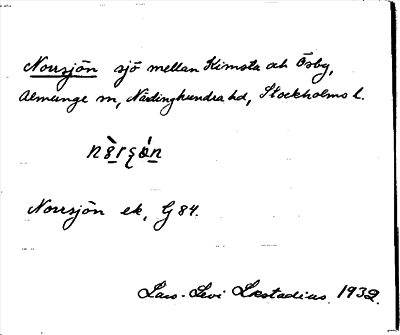 Norrsjön sjö mellan Kimsta och Ösby,
Almunge sn, Närdinghundra hd, Stockholms l.
Norrsjön ek, G 84.
Lars-Levi Læstadius 1932.